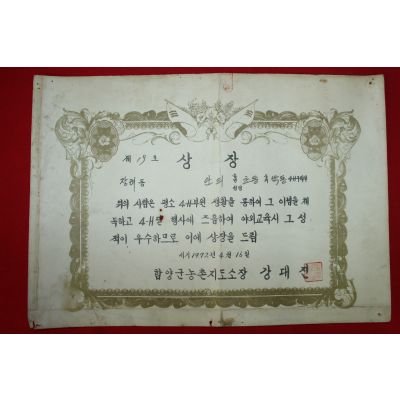 제 19 호
상 장
장려등
위의 사람은 평소 4H부원 생활을 통하여 그 이념을 체
득하고 4-H 행사에 즈음하여 야외교육시 그 성
적이 우수하므로 이에 상장을 드림
서기 1972년 4월 16일
함양군농촌지도소장 강 대 진